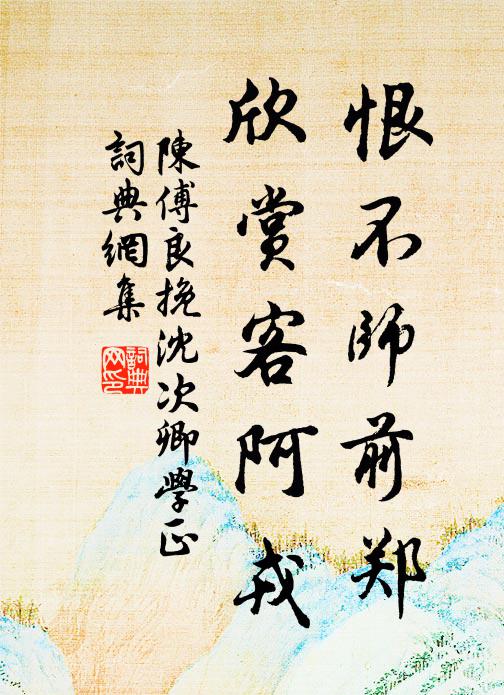 恨不師前郑
欣赏客阿戎
陳傅良挽沈次卿學正
詞典網集
詞典
网印